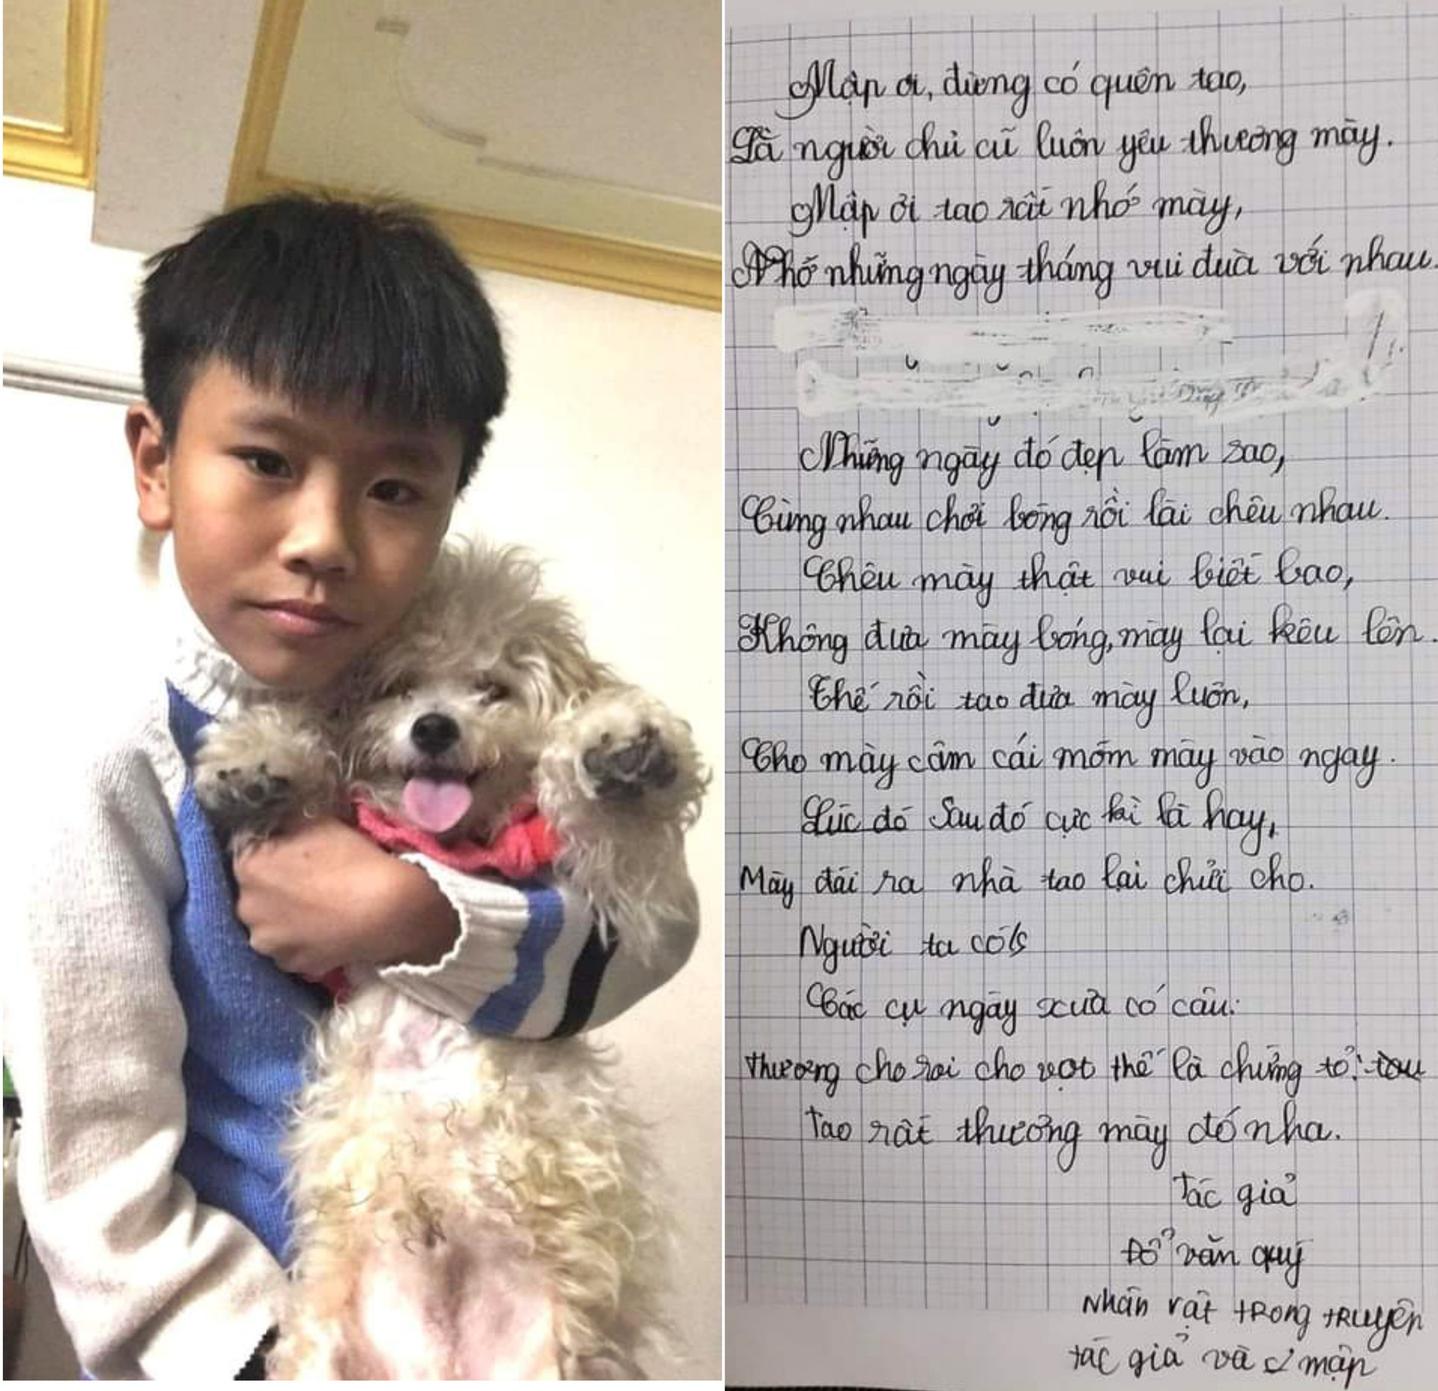 Mập ơi, đừng có quên tao,
Là người chủ cũ luôn yêu thương mày.
Mập ơi tao rất nhớ mày,
Nhớ những ngày tháng vui đùa với nhau.
Những ngày đó đẹp làm sao,
Cùng nhau chơi bóng rồi lại chêu nhau.
Chêu mày thật vui biết bao,
Không đưa mày bóng, mày lại kêu lên.
Thế rồi tao đưa mày luôn,
Cho mày câm cái mồm mày vào ngay.
Lúc đó Sau đó cực kì là hay,
Mày đái ra nhà tao lại chửi cho.
Người ta có
Các cụ ngày xưa có câu:
Thương cho roi cho vọt thế là chứng tỏ:
Tao rất thương mày đó nha.
Tác giả
Đỗ văn quý
Nhân vật trong truyện
tác giả và mập